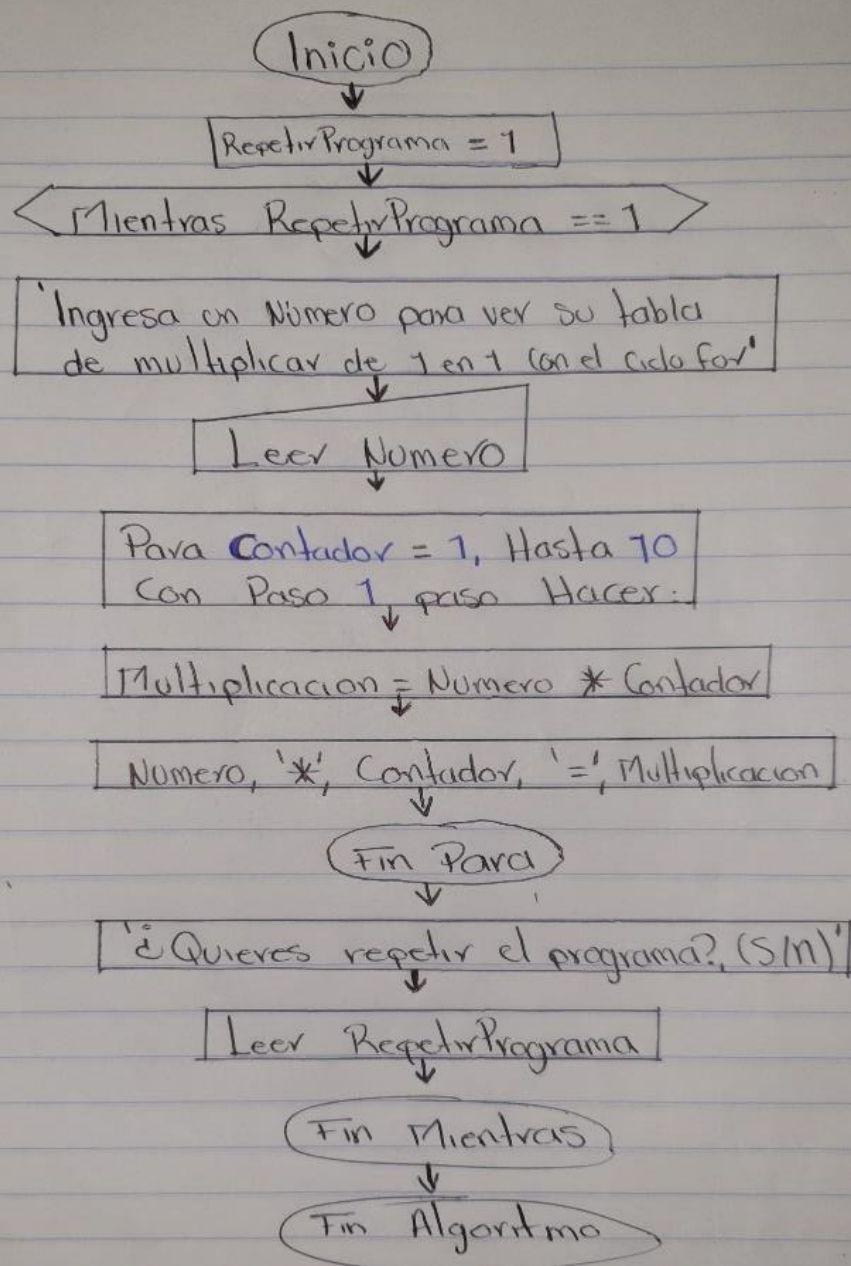 Inicio
RepetirPrograma = 1
Mientras RepetirPrograma == 1
'Ingresa un Número para ver su tabla
de multiplicar de 1 en 1 con el ciclo for'
Leer Numero
Para Contador = 1, Hasta 10
Con Paso 1, paso Hacer.
Multiplicacion = Numero * Contador
Numero, '*', Contador, '=', Multiplicacion
Fin Para
'¿Quieres repetir el programa?, (S/n)'
Leer RepetirPrograma
Fin Mientras
Fin Algoritmo